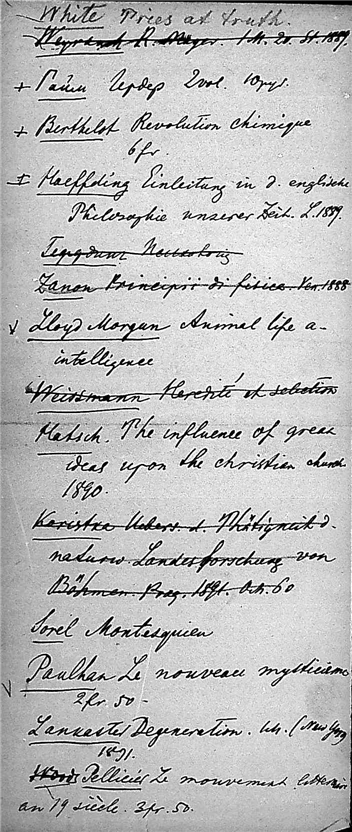 White Tries at truth.
Weyrauch R. Mayer. 1 M. 20. St. 1889.
+ Гайм Гердер 2 vol. 10 рус.
+ Berthelot Revolution chimique
6 fr.
± Hoeffding Einleitung in d. englische
Philosophie unserer Zeit. L. 1889.
Zanon Principii di fisica. Ven. 1888
v Lloyd Morgan Animal life a-
intelligence
Weissmann Heredité et selection
Hatsch. The influence of great
ideas upon the christian church
1890.
Koristka Uebers. d. Thätigkeit d.
naturw Landesforschung von
Böhmen. Prag. 1891. 60
Sorel Montesquieu
v Paulhan Le nouveau mysticisme
2 fr. 50 -
Lankaster Degeneration. (New York
1891.
Pellicier Le mouvement litteraire
au 19 siècle. 3 fr. 50.